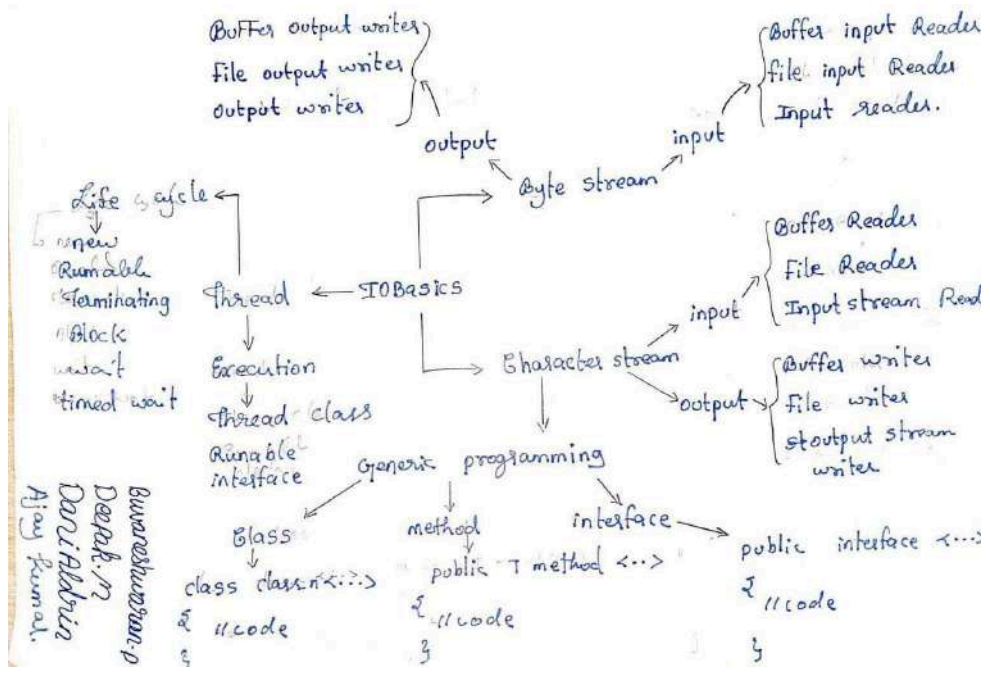 Buffer output writer
File output writer
output writer
Buffer input Reader
file input Reader
Input reader.
output
input
Byte stream
Life cycle
new
Runnable
Terminating
Block
wait
timed wait
Thread
IOBasics
Execution
Thread class
Runable
interface
Character stream
input
Buffer Reader
File Reader
Input stream Read
output
Buffer writer
File writer
stoutput stream
writer
Generic programming
Class
method
interface
class class.n<...>
{
//code
}
public T method <..>
{
//code
}
public interface <...>
{
//code
}
Buvaneshwaran.p
Deepak.M
Dani Aldrin
Ajay Kumar.